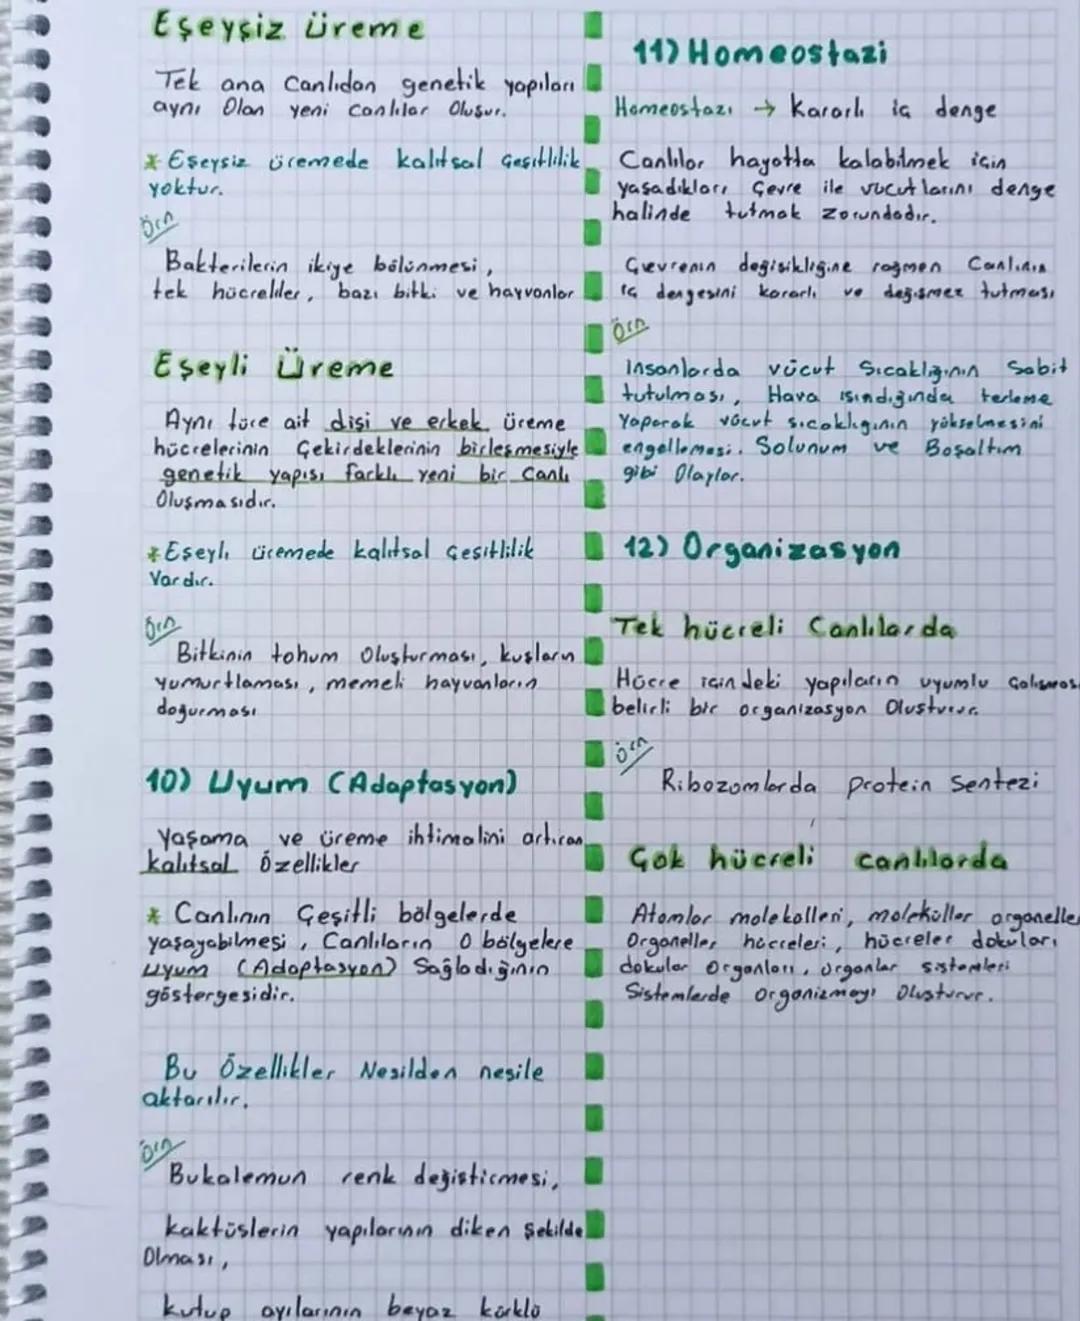 Eşeysiz üreme
Tek ana Canlıdan genetik yapıları
aynı Olan yeni canlılar Oluşur.
* Eşeysiz üremede kalıtsal Çeşitlilik
yoktur.
Örn
Bakterilerin ikiye bölünmesi,
tek hücreliler, bazı bitki ve hayvanlar
Eşeyli Üreme
Aynı türe ait dişi ve erkek üreme
hücrelerinin Çekirdeklerinin birleşmesiyle
genetik yapısı farklı yeni bir Canlı
Oluşmasıdır.
* Eşeyli üremede kalıtsal Çeşitlilik
Vardır.
Örn
Bitkinin tohum Oluşturması, kuşların
yumurtlaması, memeli hayvanların
doğurması
10) Uyum (Adaptasyon)
Yaşama ve üreme ihtimalini artıran
kalıtsal Özellikler
* Canlının Çeşitli bölgelerde
yaşayabilmesi, Canlıların O bölgelere
uyum (Adaptasyon) Sağladığının
göstergesidir.
Bu Özellikler Nesilden nesile
aktarılır.
Örn
Bukalemun renk değiştirmesi,
kaktüslerin yapılarının diken Şekilde
Olması,
kutup ayılarının beyaz kürklü
11) Homeostazi
Homeostazi → Kararlı iç denge
Canlılar hayatta kalabilmek için
yaşadıkları Çevre ile vücutlarını denge
halinde tutmak zorundadır.
Çevrenin değişikliğine rağmen Canlının
iç dengesini kararlı ve değişmez tutması
Örn
İnsanlarda vücut Sıcaklığının Sabit
tutulması, Hava ısındığında terleme
Yaparak vücut sıcaklığının yükselmesini
engellemesi. Solunum ve Boşaltım
gibi Olaylar.
12) Organizasyon
Tek hücreli Canlılarda
Hücre içindeki yapıların uyumlu Çalışması
belirli bir organizasyon Oluşturur.
Örn
Ribozomlarda protein Sentezi
Çok hücreli canlılarda
Atomlar molekülleri, moleküller organelle
Organeller hücreleri, hücreler dokuları
dokular Organları, organlar sistemleri
Sistemlerde organizmayı Oluşturur.